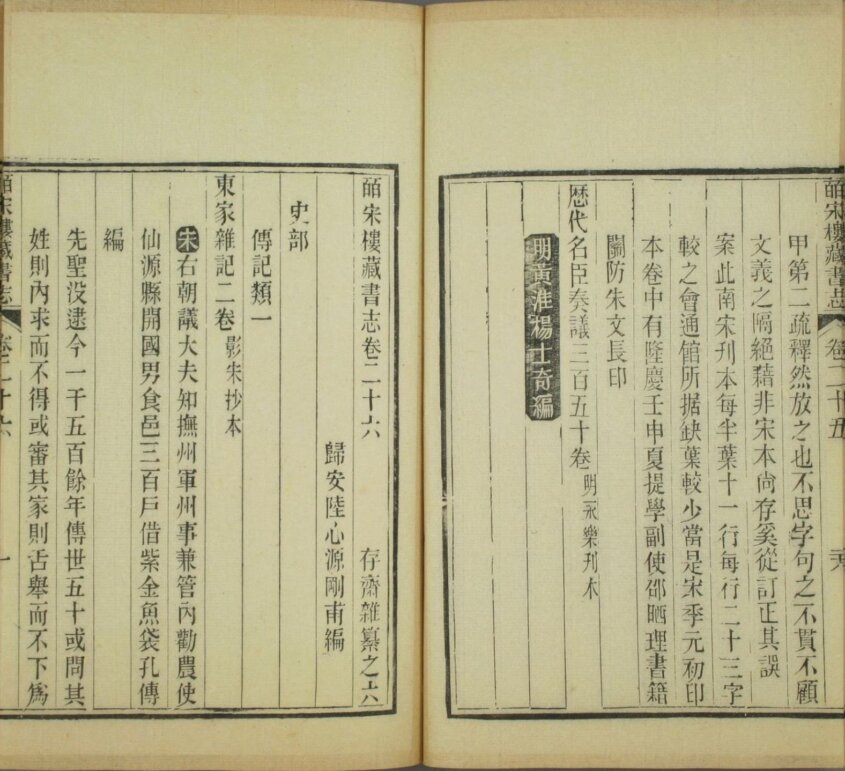 皕宋樓藏書志 卷二十五
甲第二疏釋然放之也不思字句之不貫不顧
文義之隔絕藉非宋本尚存奚從訂正其誤
案此南宋刋本每半葉十一行每行二十三字
較之會通館所据缺葉較少當是宋季元初印
本卷中有隆慶壬申夏提學副使邵晒理書籍
關防朱文長印
歷代名臣奏議三百五十卷 明永樂刋本
明黃淮楊士奇編
皕宋樓藏書志卷二十六 存齋雜纂之六
歸安陸心源剛甫編
史部
傳記類一
東家雜記二卷 影宋抄本
宋右朝議大夫知撫州軍州事兼管內勸農使
仙源縣開國男食邑三百戶借紫金魚袋孔傳
編
先聖没逮今一千五百餘年傳世五十或問其
姓則內求而不得或審其家則舌舉而不下爲
皕宋樓藏書志 卷二十六 一